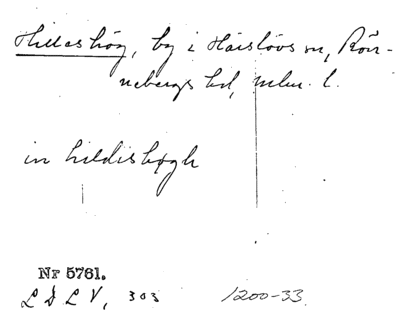 Hilleshög, by i Härslövs sn, Rön-
nebergs hd, mlm. l.
in hildishøgh
Nr 5761.
L D L V, 303 1200-33.